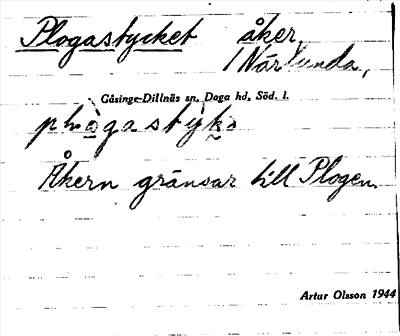 Plogastycket åker
/ Närlunda,
Gåsinge-Dillnäs sn, Daga hd, Söd. l.
Åkern gränsar till Plogen.
Artur Olsson 1944